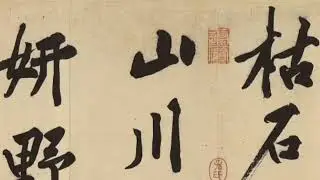 枯石
山川
妍野